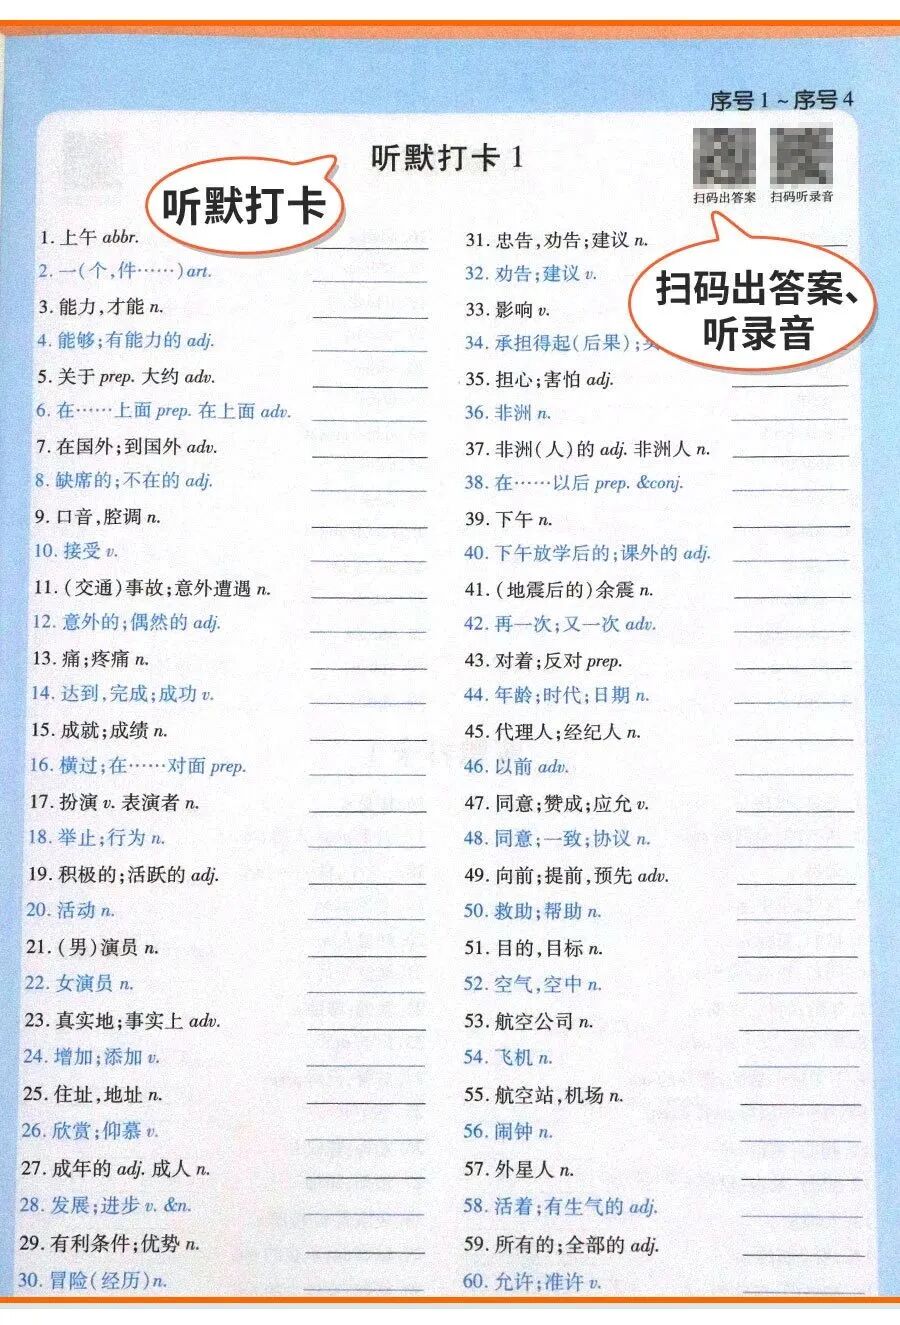 序号1~序号4
听默打卡1
听默打卡
扫码出答案 扫码听录音
扫码出答案、
听录音
1. 上午 abbr.
2. 一(个,件……)art.
3. 能力,才能 n.
4. 能够;有能力的 adj.
5. 关于 prep. 大约 adv.
6. 在……上面 prep. 在上面 adv.
7. 在国外;到国外 adv.
8. 缺席的;不在的 adj.
9. 口音,腔调 n.
10. 接受 v.
11. (交通)事故;意外遭遇 n.
12. 意外的;偶然的 adj.
13. 痛;疼痛 n.
14. 达到,完成;成功 v.
15. 成就;成绩 n.
16. 横过;在……对面 prep.
17. 扮演 v. 表演者 n.
18. 举止;行为 n.
19. 积极的;活跃的 adj.
20. 活动 n.
21. (男)演员 n.
22. 女演员 n.
23. 真实地;事实上 adv.
24. 增加;添加 v.
25. 住址,地址 n.
26. 欣赏;仰慕 v.
27. 成年的 adj. 成人 n.
28. 发展;进步 v. &n.
29. 有利条件;优势 n.
30. 冒险(经历)n.
31. 忠告,劝告;建议 n.
32. 劝告;建议 v.
33. 影响 v.
34. 承担得起(后果);
35. 担心;害怕 adj.
36. 非洲 n.
37. 非洲(人)的 adj. 非洲人 n.
38. 在……以后 prep. &conj.
39. 下午 n.
40. 下午放学后的;课外的 adj.
41. (地震后的)余震 n.
42. 再一次;又一次 adv.
43. 对着;反对 prep.
44. 年龄;时代;日期 n.
45. 代理人;经纪人 n.
46. 以前 adv.
47. 同意;赞成;应允 v.
48. 同意;一致;协议 n.
49. 向前;提前,预先 adv.
50. 救助;帮助 n.
51. 目的,目标 n.
52. 空气,空中 n.
53. 航空公司 n.
54. 飞机 n.
55. 航空站,机场 n.
56. 闹钟 n.
57. 外星人 n.
58. 活着;有生气的 adj.
59. 所有的;全部的 adj.
60. 允许;准许 v.